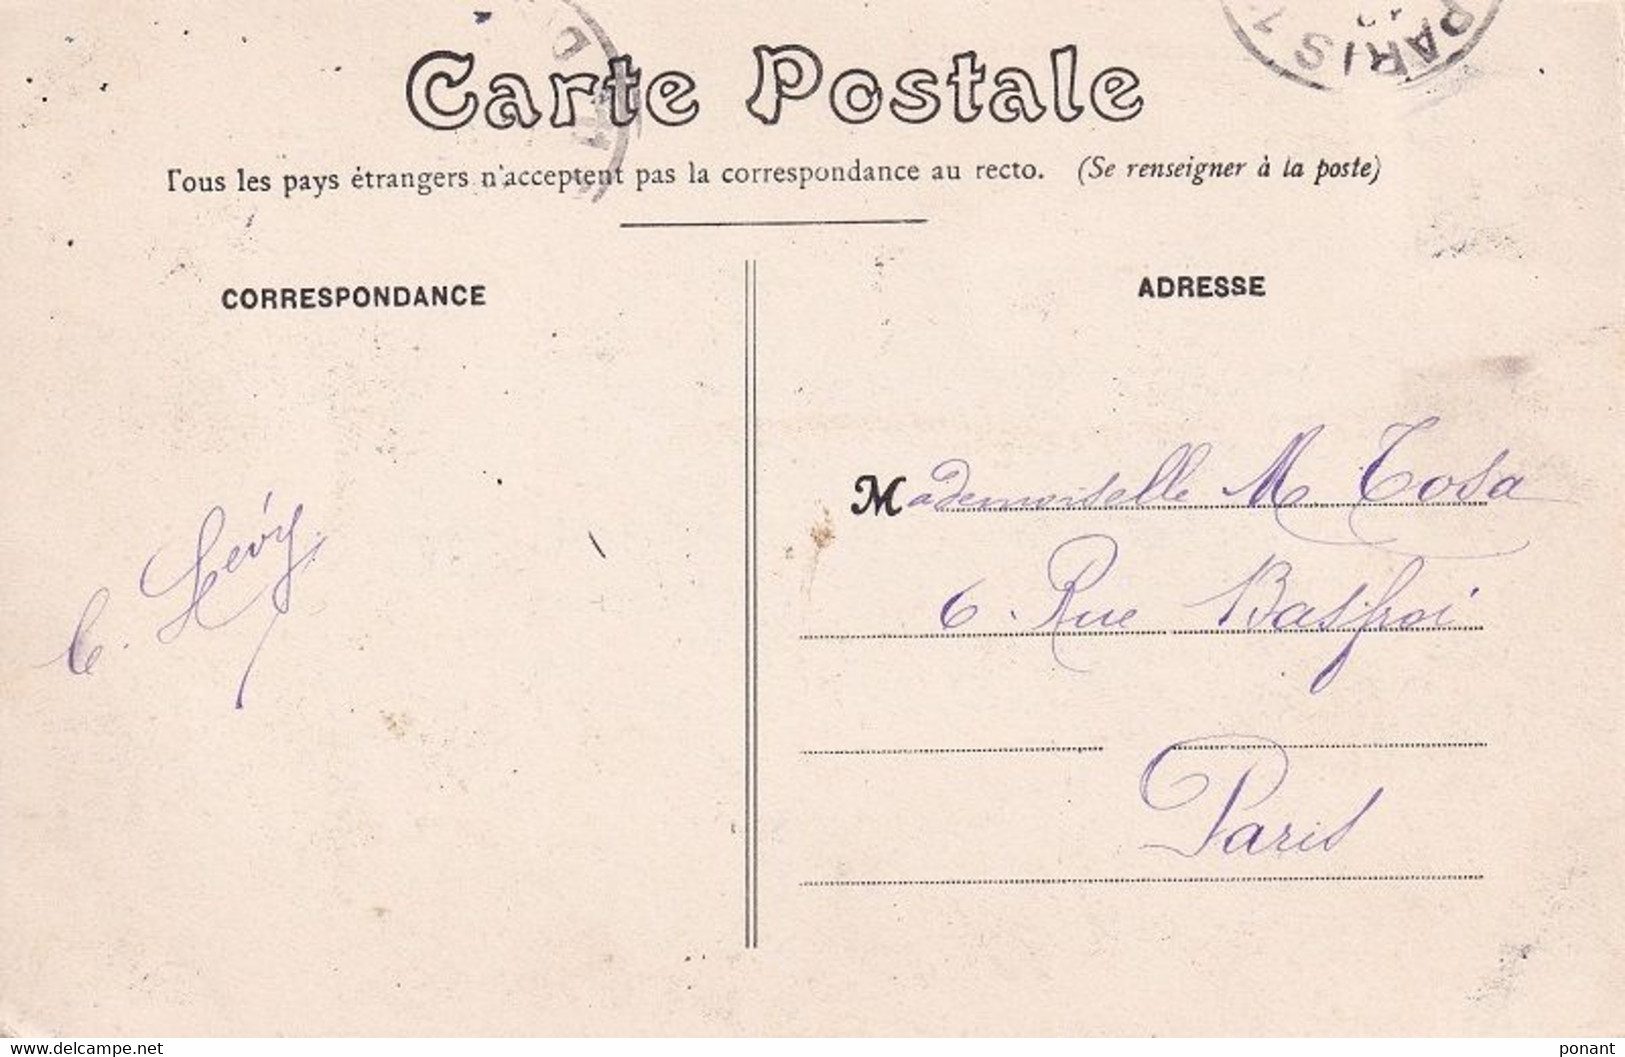 Carte Postale
Tous les pays étrangers n'acceptent pas la correspondance au recto. (Se renseigner à la poste)
CORRESPONDANCE
ADRESSE
Mademoiselle M Tosa
6. Rue Basfroi
Paris
C. Lévy
PARIS 1
www.delcampe.net
ponant